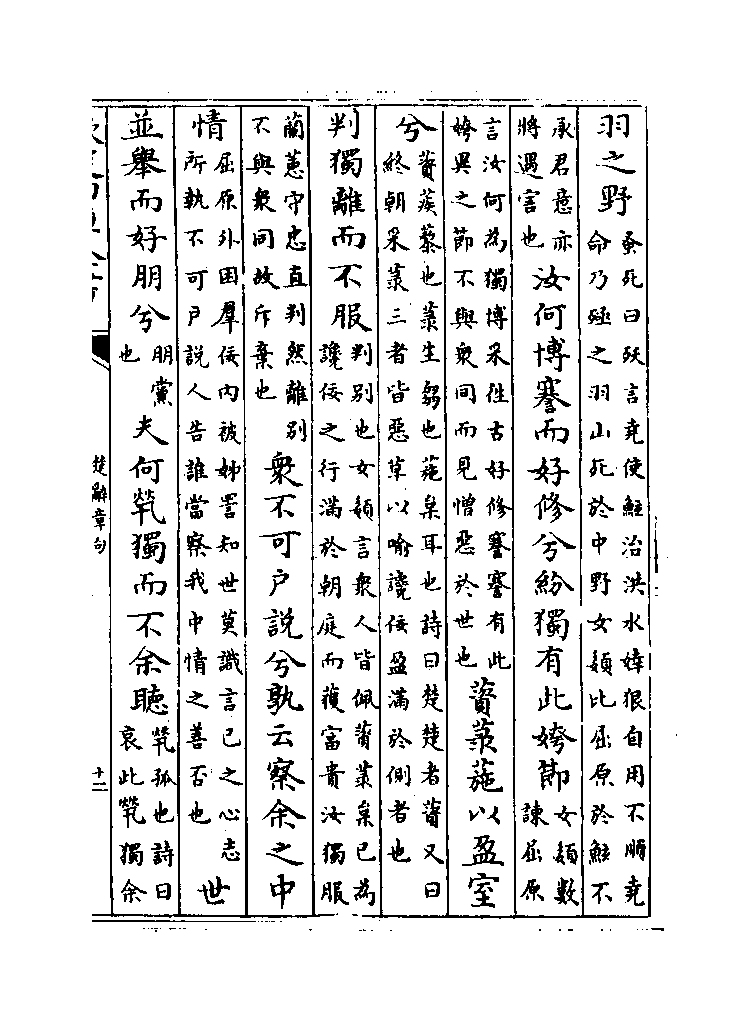 羽之野蚤死曰殀言堯使鮌治洪水婞狠自用不順堯命乃殛之羽山死於中野女嬃比屈原於鮌不
承君意亦將遇害也汝何博謇而好修兮紛獨有此姱節女嬃數諫屈原
言汝何為獨博采徃古好修謇謇有此姱異之節不與衆同而見憎惡於世也薋菉葹以盈室
兮薋蒺藜也菉生芻也葹枲耳也詩曰楚楚者薋又曰終朝采菉三者皆惡草以喻讒佞盈滿於側者也
判獨離而不服判别也女嬃言衆人皆佩薋菉枲已為讒佞之行滿於朝庭而獲富貴汝獨服
蘭蕙守忠直判然離别不與衆同故斥棄也衆不可户說兮孰云察余之中
情屈原外困羣佞内被姊詈知世莫識言已之心志所執不可户說人告誰當察我中情之善否也世
並舉而好朋兮朋黨也夫何㷀獨而不余聽㷀孤也詩曰哀此㷀獨余
楚辭章句
十二